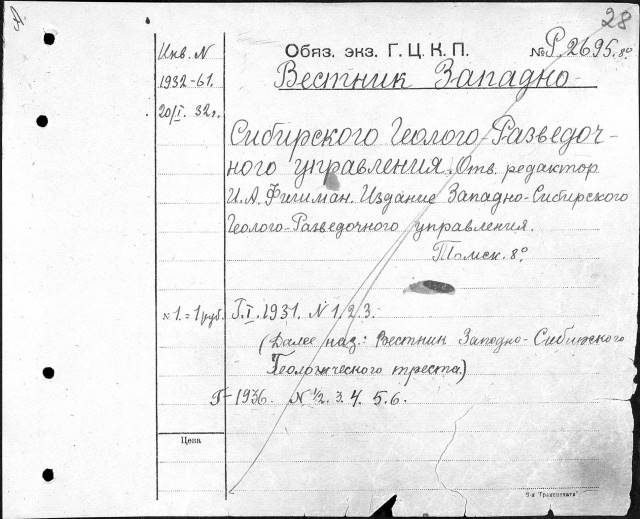 28
Инв. N
1932-61.
20/I. 32г.
Обяз. экз. Г. Ц. К. П.
№ Р.2695. 8º
Вестник Западно-
Сибирского Геолого-Разведоч-
ного управления. Отв. редактор
И. А. Фигиман. Издание Западно-Сибирского
Геолого-Разведочного управления.
Томск. 8º
№ 1. = 1 руб.
Г. I. 1931. N 1. 2. 3.
(Далее наз.: Вестник Западно-Сибирского
Геологического треста.)
Г- 1936. N 1/2. 3. 4. 5. 6.
Цена